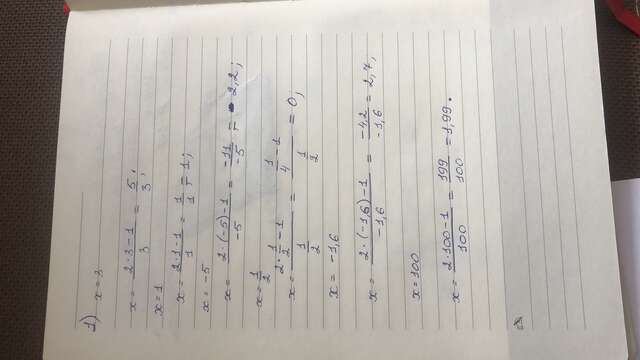 1) x = 3
x = 2·3-1/3 = 5/3;
x = 1
x = 2·1-1/1 = 1/1 = 1;
x = -5
x = 2·(-5)-1/-5 = -11/-5 = 2,2;
x = 1/2
x = 2·1/2-1/1/2 = 1/1-1/1/2 = 0;
x = -1,6
x = 2·(-1,6)-1/-1,6 = -4,2/-1,6 = 2,7;
x = 100
x = 2·100-1/100 = 199/100 = 1,99.